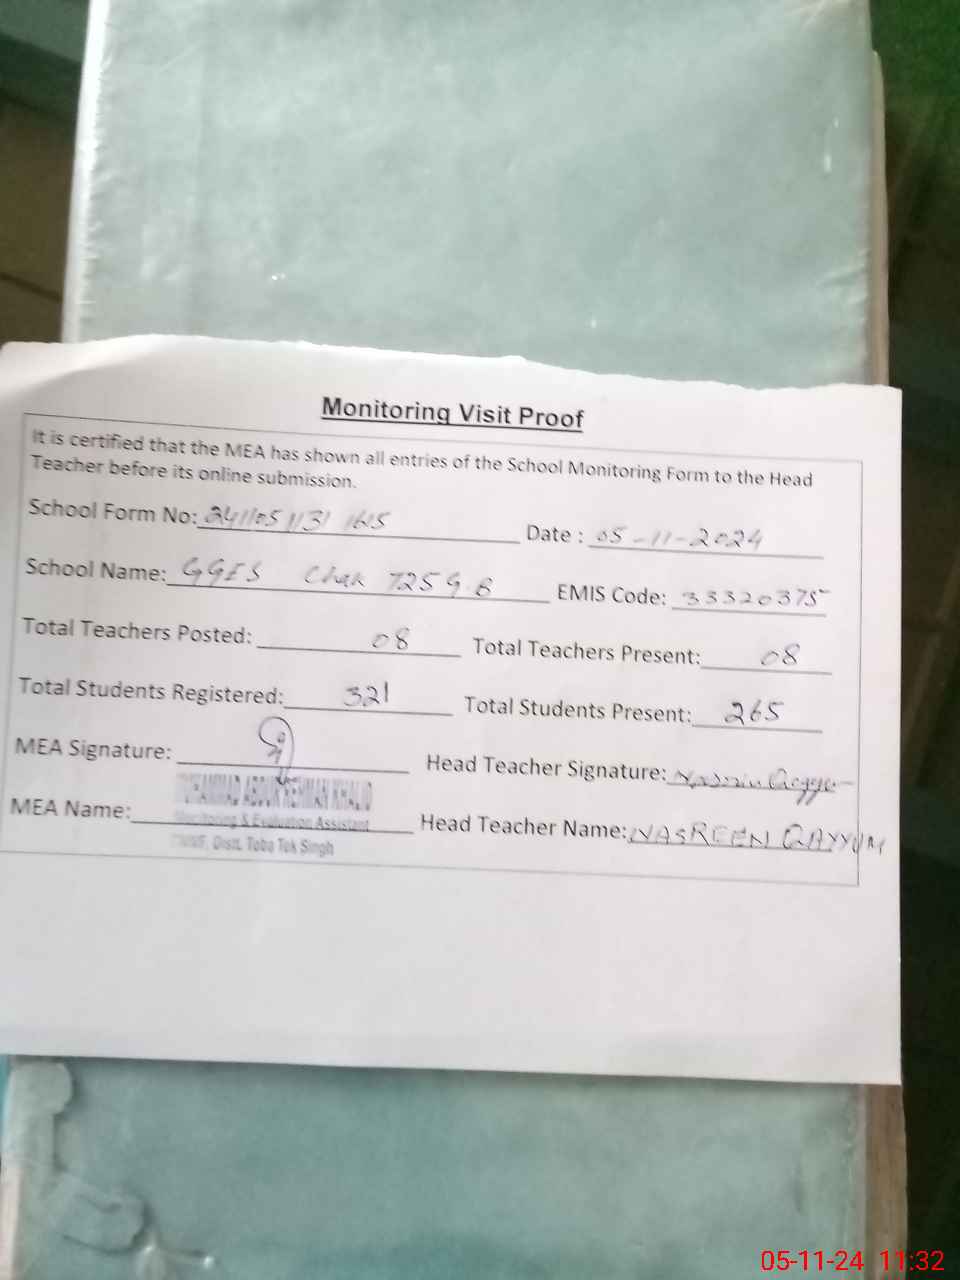 Monitoring Visit Proof
It is certified that the MEA has shown all entries of the School Monitoring Form to the Head
Teacher before its online submission.
School Form No: Date : 05-11-2024
School Name: GGES Chak 725 G.B EMIS Code: 33320375
Total Teachers Posted: 08 Total Teachers Present: 08
Total Students Registered: 321 Total Students Present: 265
MEA Signature: Head Teacher Signature:
MUHAMMAD ABDUR REHMAN KHALID
MEA Name: Monitoring & Evaluation Assistant Head Teacher Name: NASREEN QAYYUM
Distt. Toba Tek Singh
05-11-24 11:32